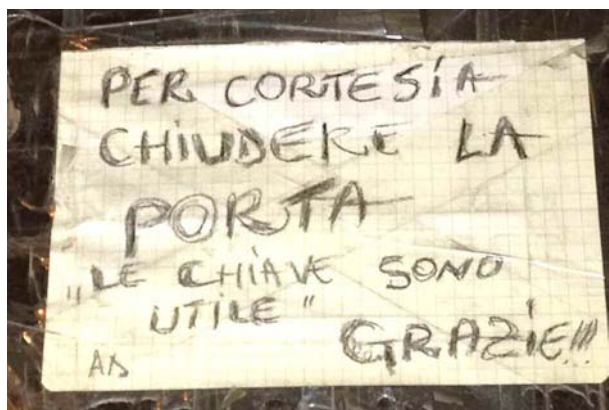 PER CORTESÍA
CHIUDERE LA
PORTA
„LE CHIAVE SONO
UTILE"
GRAZIE!!!